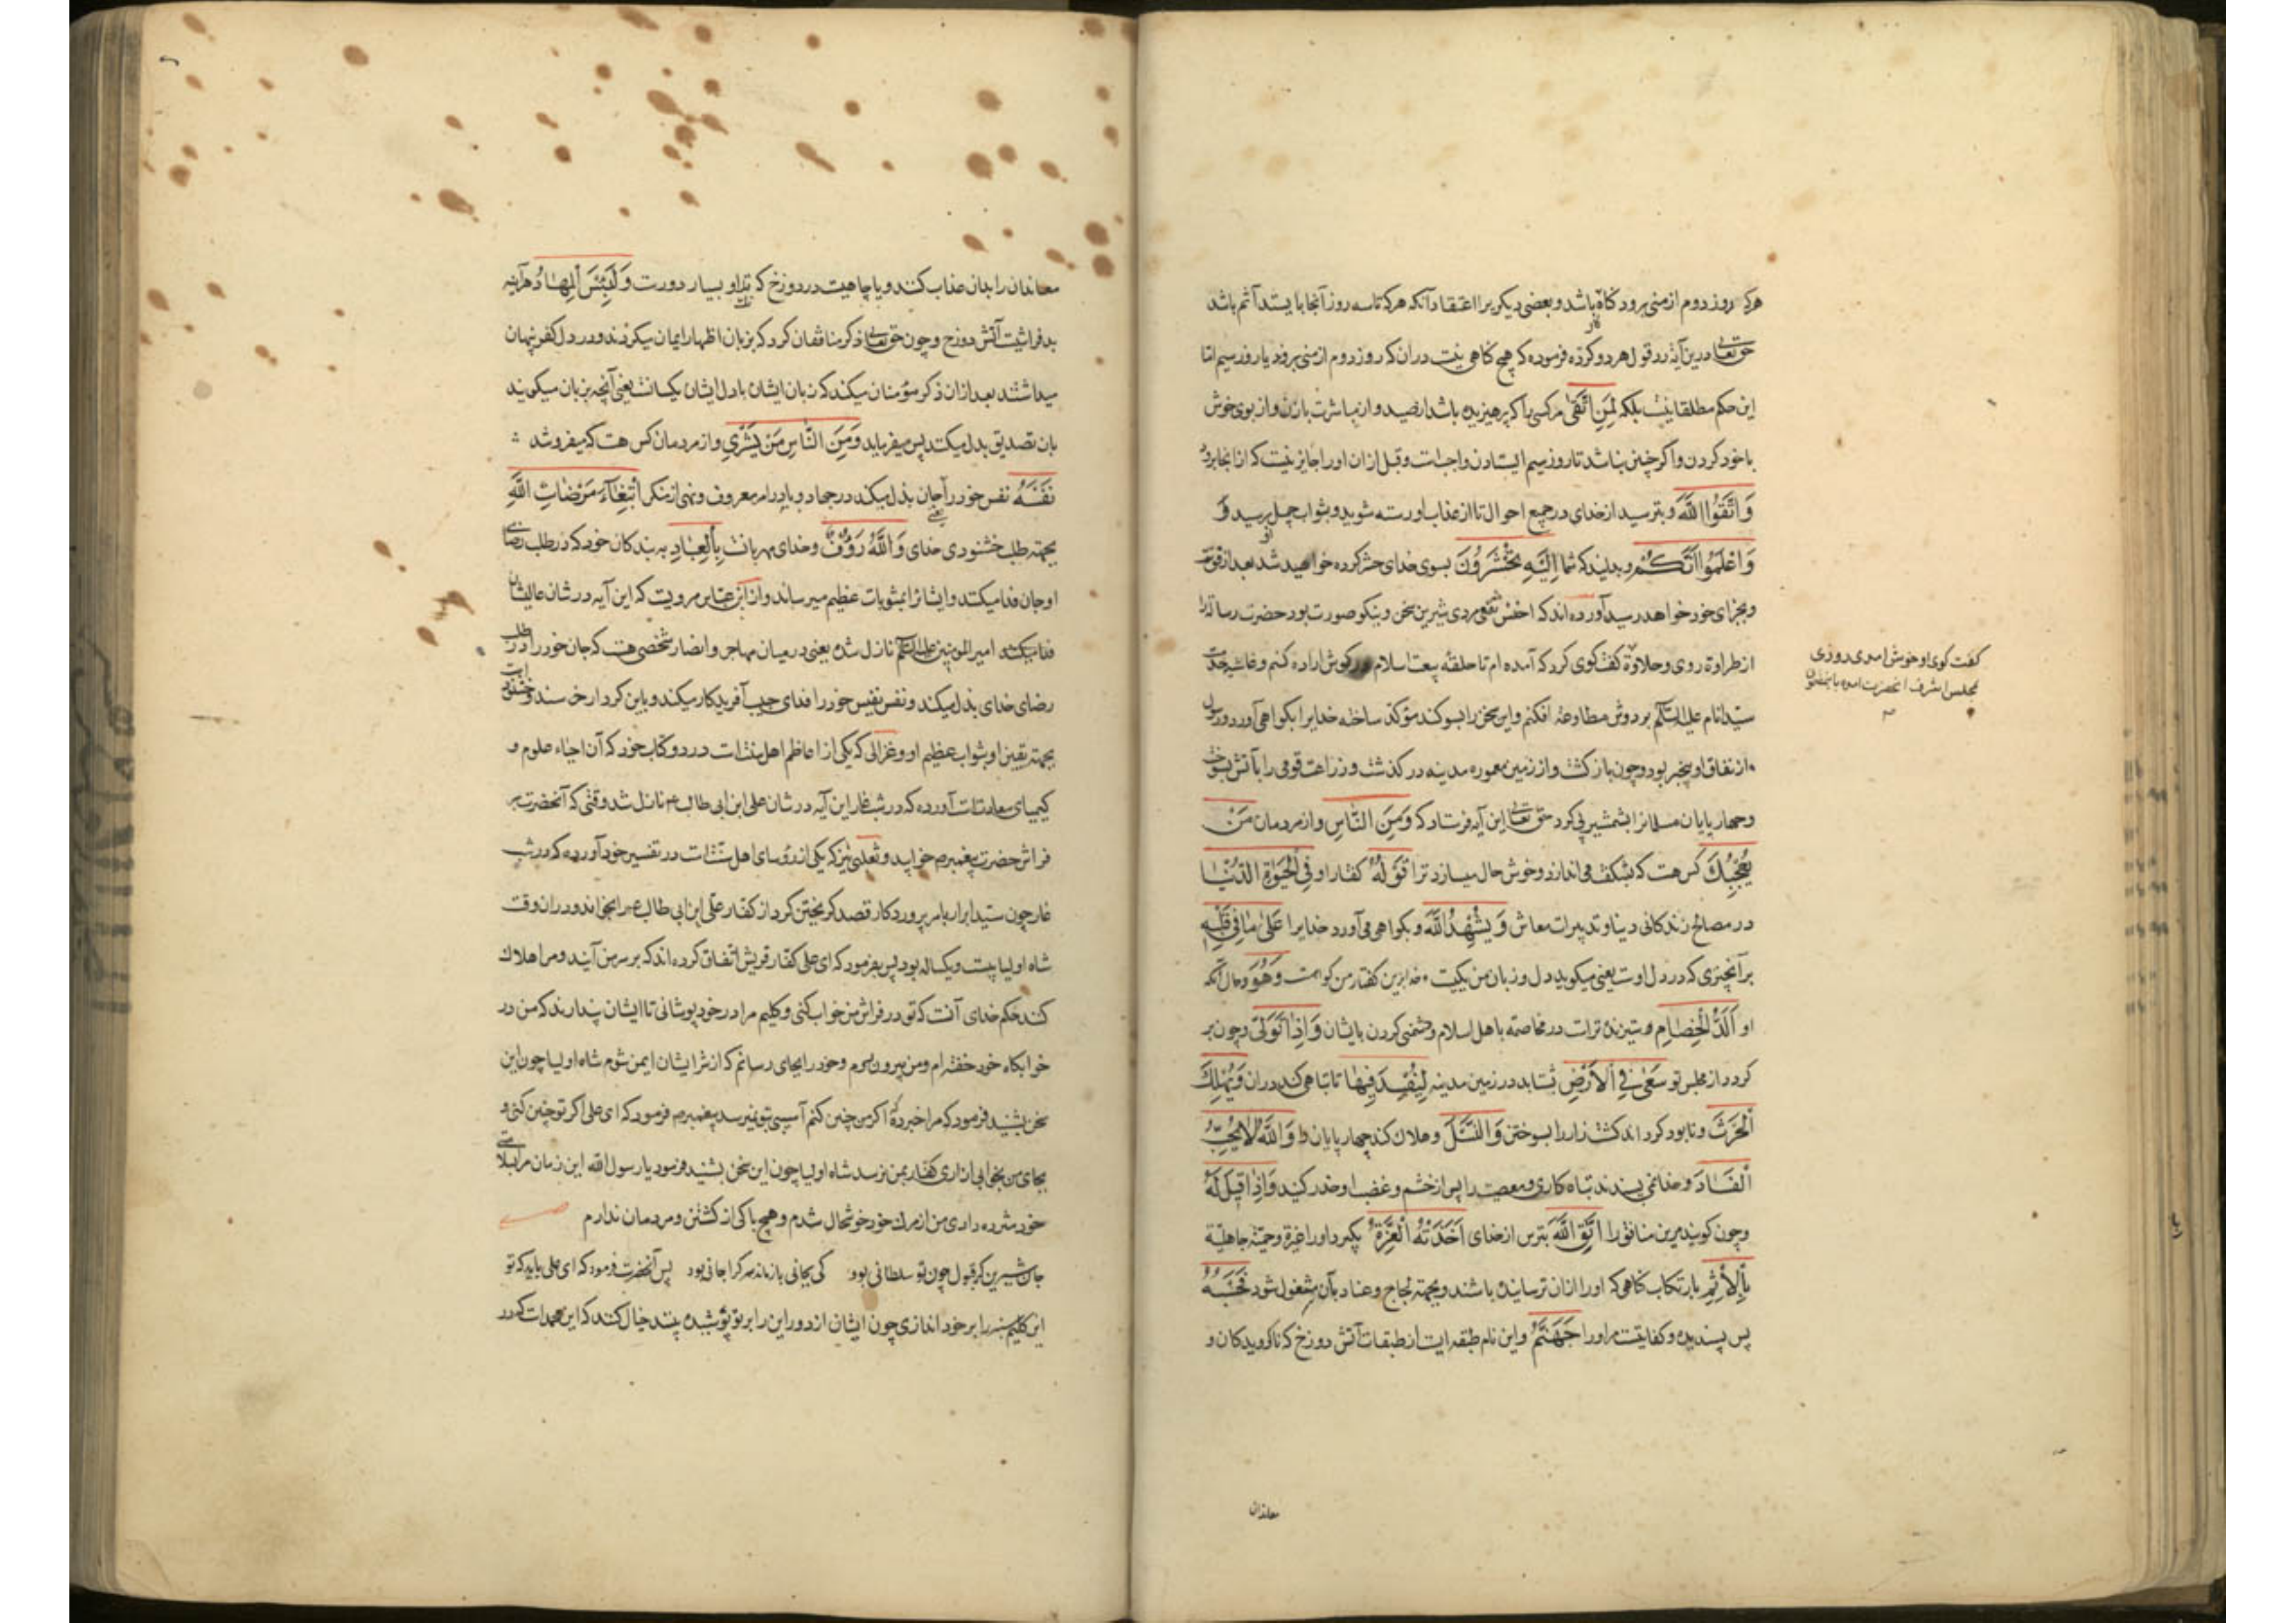 هرکه روز دوم از منی برود کناه کار باشد و بعضی دیکر برا اعتقاد آنکه هرکه تا سه روز آنجا بایستد آثم باشد
حق تعالی درین آیه رد قول هر دو کرده فرموده که هیچ کناهی نیست در آن که روز دوم از منی بروند یا روز سیم اما
این حکم مطلقا نیست بلکه لِمَنِ اتَّقَى مر کسی را که پرهیزیده باشد از صید و از مباشرت با زن و از بوی خوش
با خود کردن و اکر چنین نباشد تا روز سیم ایستادن واجبست و قبل از ان او را جایز نیست که از انجا برود
وَاتَّقُوا اللَّهَ و بترسید از خدای در جمیع احوال تا از عذاب او رسته شوید و بثواب
وَاعْلَمُوا أَنَّكُمْ و بدانید که شما إِلَيْهِ تُحْشَرُونَ بسوی خدای حشر کرده خواهید شد بعد از فوت
و بجزای خود خواهد رسید آورده اند که اخنس ثقفی مردی شیرین سخن و نیکو صورت بود حضرت رسالة را
از طراوة روی و حلاوة کفت کوی کرد که آمده ام تا حلقه بیعت اسلام در کوش اراده کنم و غاشیه خدمت
کفت کوی او خوش امدی روزی
بمجلس اشرف انحضرت امده
سید انام علیه السلم بر دوش مطاوعة افکنم و این سخن را بسوکند مؤکد ساخته خدایرا بکواهی آورد و رسول
از نفاق او بیخبر بود و چون باز کشت و از زمین معموره مدینه در کذشت و زراعت قومی را بآتش بسوخت
و چهارپایان مسلمانرا بشمشیر پی کرد حق تعالی این آیه فرستاد که وَمِنَ النَّاسِ و از مردمان مَنْ
يُعْجِبُكَ کس هست که بشکفت می اندازد و خوش حال میسازد ترا قَوْلُهُ کفتار او فِي الْحَيٰوةِ الدُّنْيَا
در مصالح زندکانی دنیا و تدبیرات معاش وَيُشْهِدُ اللَّهَ و بکواهی می آورد خدایرا عَلَىٰ مَا فِي قَلْبِهِ
بر آنچیزی که در دل اوست یعنی میکوید دل و زبان من یکیست و خدا برین کفتار من کواهست وَهُوَ و حال آنکه
او أَلَدُّ الْخِصَامِ ستیزنده تراست در مخاصمه با اهل اسلام و دشمنی کردن بایشان وَإِذَا تَوَلَّىٰ و چون بر
کردد از مجلس تو سَعَىٰ فِي الْأَرْضِ بشتابد در زمین مدینه لِيُفْسِدَ فِيهَا تا تباهی کند در ان وَيُهْلِكَ
الْحَرْثَ و نابود کرداند کشت زار را بسوختن وَالنَّسْلَ و هلاک کند چهارپایان را وَاللَّهُ لَا يُحِبُّ
الْفَسَادَ و خدا نمی پسندد تباه کاری و معصیت را پس از خشم و غضب او حذر کنید وَإِذَا قِيلَ لَهُ
و چون کویند مر این منافق را اتَّقِ اللَّهَ بترس از خدای أَخَذَتْهُ الْعِزَّةُ بکیرد او را غیرة و حمیة جاهلیة
بِالْإِثْمِ بارتکاب کناهی که او را از ان ترسانیده باشند و بجهة لجاج و عناد بآن مشغول شود فَحَسْبُهُ
پس پسندیده و کفایتست مر او را جَهَنَّمُ و این نام طبقه ایست از طبقات آتش دوزخ که ناکرویدکان و
معاندان
معاندان را بدان عذاب کنند و یا چاهیست در دوزخ که تک او بسیار دورست وَلَبِئْسَ الْمِهَادُ هر آینه
بد فراشیست آتش دوزخ و چون حق تعالی ذکر منافقان کرد که بزبان اظهار ایمان میکردند و در دل کفر پنهان
میداشتند بعد از ان ذکر مؤمنان میکند که زبان ایشان با دل ایشان یکسانست یعنی آنچه بزبان میکویند
بان تصدیق بدل میکنند پس میفرماید وَمِنَ النَّاسِ مَنْ يَشْرِي و از مردمان کس هست که میفروشد
نَفْسَهُ نفس خود را بجان بذل میکند در جهاد و یا در امر معروف و نهی از منکر ابْتِغَاءَ مَرْضَاتِ اللَّهِ
بجهة طلب خشنودی خدای وَاللَّهُ رَؤُفٌ و خدای مهربانست بِالْعِبَادِ به بندکان خود که در طلب رضای
او جان فدا میکنند و ایشانرا بمثوبات عظیم میرساند و از ابن عباس مرویست که این آیه در شان عالیشان
امیر المومنین علیه السلم نازل شده یعنی در میان مهاجر و انصار شخصی هست که جان خود را در طلب
رضای خدای بذل میکند و نفس نفیس خود را فدای حبیب آفریدکار میکند و باین کردار خرسند و خشنود است
بجهة یقین او بثواب عظیم او و غزالی که یکی از اعاظم اهل سنتست در دو کتاب خود که آن احیاء علوم و
کیمیای سعادتست آورده که در شب غار این آیه در شان علی ابن ابی طالب نازل شد وقتی که آنحضرت بر
فراش حضرت پیغمبر خوابید و ثعلبی نیز که یکی از رؤسای اهل سنتست در تفسیر خود آورده که در شب
غار چون سید ابرار بامر پروردکار قصد کریختن کرد از کفار علی ابن ابی طالب را بخواند و در ان وقت
شاه اولیا بیست و یکساله بود پس بفرمود که ای علی کفار قریش اتفاق کرده اند که بر سر من آیند و مرا هلاک
کنند حکم خدای آنست که تو در فراش من خواب کنی و کلیم مرا در خود پوشانی تا ایشان پندارند که من در
خوابکاه خود خفته ام و من بیرون روم و خود را بجای رسانم که از شر ایشان ایمن شوم شاه اولیا چون این
سخن بشنید فرمود که مرا خبر ده که اکر من چنین کنم آسیبی بتو نمیرسد پیغمبر فرمود که ای علی اکر تو چنین کنی و
بجای من بخوابی ازاری کفار بمن نرسد شاه اولیا چون این سخن بشنید فرمود یا رسول الله این زمان مرا بسلامتی
خود مژده دادی من از مرک خود خوشحال شدم و هیچ باکی از کشتن و مردمان ندارم
جان شیرین کر قبول چون تو سلطانی بود کی بجانی باز ماند هر کرا جانی بود پس آنحضرت فرمود که ای علی باید که تو
این کلیم سبز را بر خود اندازی چون ایشان از دور این را بر تو پوشیده بینند خیال کنند که این محمد است که در